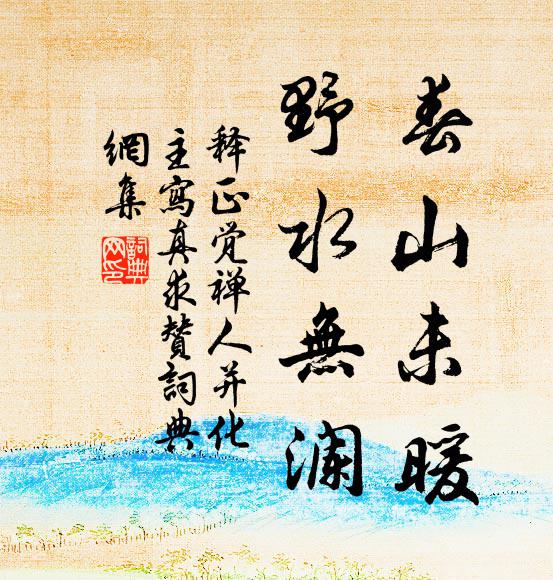 春山未暖
野水無澜
释正觉禅人并化
主寫真求赞詞典
網集
詞典網印